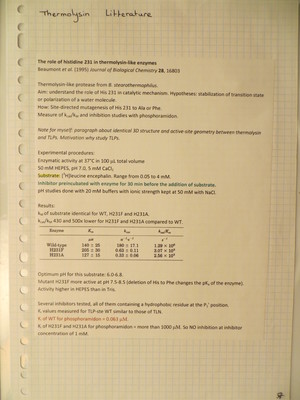 Thermolysin Litterature
The role of histidine 231 in thermolysin-like enzymes
Beaumont et al. (1995) Journal of Biological Chemistry 28, 16803
Thermolysin-like protease from B. stearothermophilus.
Aim: understand the role of His 231 in catalytic mechanism. Hypotheses: stabilization of transition state
or polarization of a water molecule.
How: Site-directed mutagenesis of His 231 to Ala or Phe.
Measure of kcat/KM and inhibition studies with phosphoramidon.
Note for myself: paragraph about identical 3D structure and active-site geometry between thermolysin
and TLPs. Motivation why study TLPs.
Experimental procedures:
Enzymatic activity at 37°C in 100 µL total volume
50 mM HEPES, pH 7.0, 5 mM CaCl₂
Substrate: [³H]leucine encephalin. Range from 0.05 to 4 mM.
Inhibitor preincubated with enzyme for 30 min before the addition of substrate.
pH studies done with 20 mM buffers with ionic strength kept at 50 mM with NaCl.
Results:
KM of substrate identical for WT, H231F and H231A.
kcat/KM 430 and 500x lower for H231F and H231A compared to WT.
Enzyme Km kcat kcat/Km
µM s⁻¹ s⁻¹
Wild-type
H231F
H231A
Optimum pH for this substrate: 6.0-6.8.
Mutant H231F more active at pH 7.5-8.5 (deletion of His to Phe changes the pKa of the enzyme).
Activity higher in HEPES than in Tris.
Several inhibitors tested, all of them containing a hydrophobic residue at the P₁' position.
Ki values measured for TLP-ste WT similar to those of TLN.
Ki of WT for phosphoramidon = 0.063 µM.
Ki of H231F and H231A for phosphoramidon = more than 1000 µM. So NO inhibition at inhibitor
concentration of 1 mM.